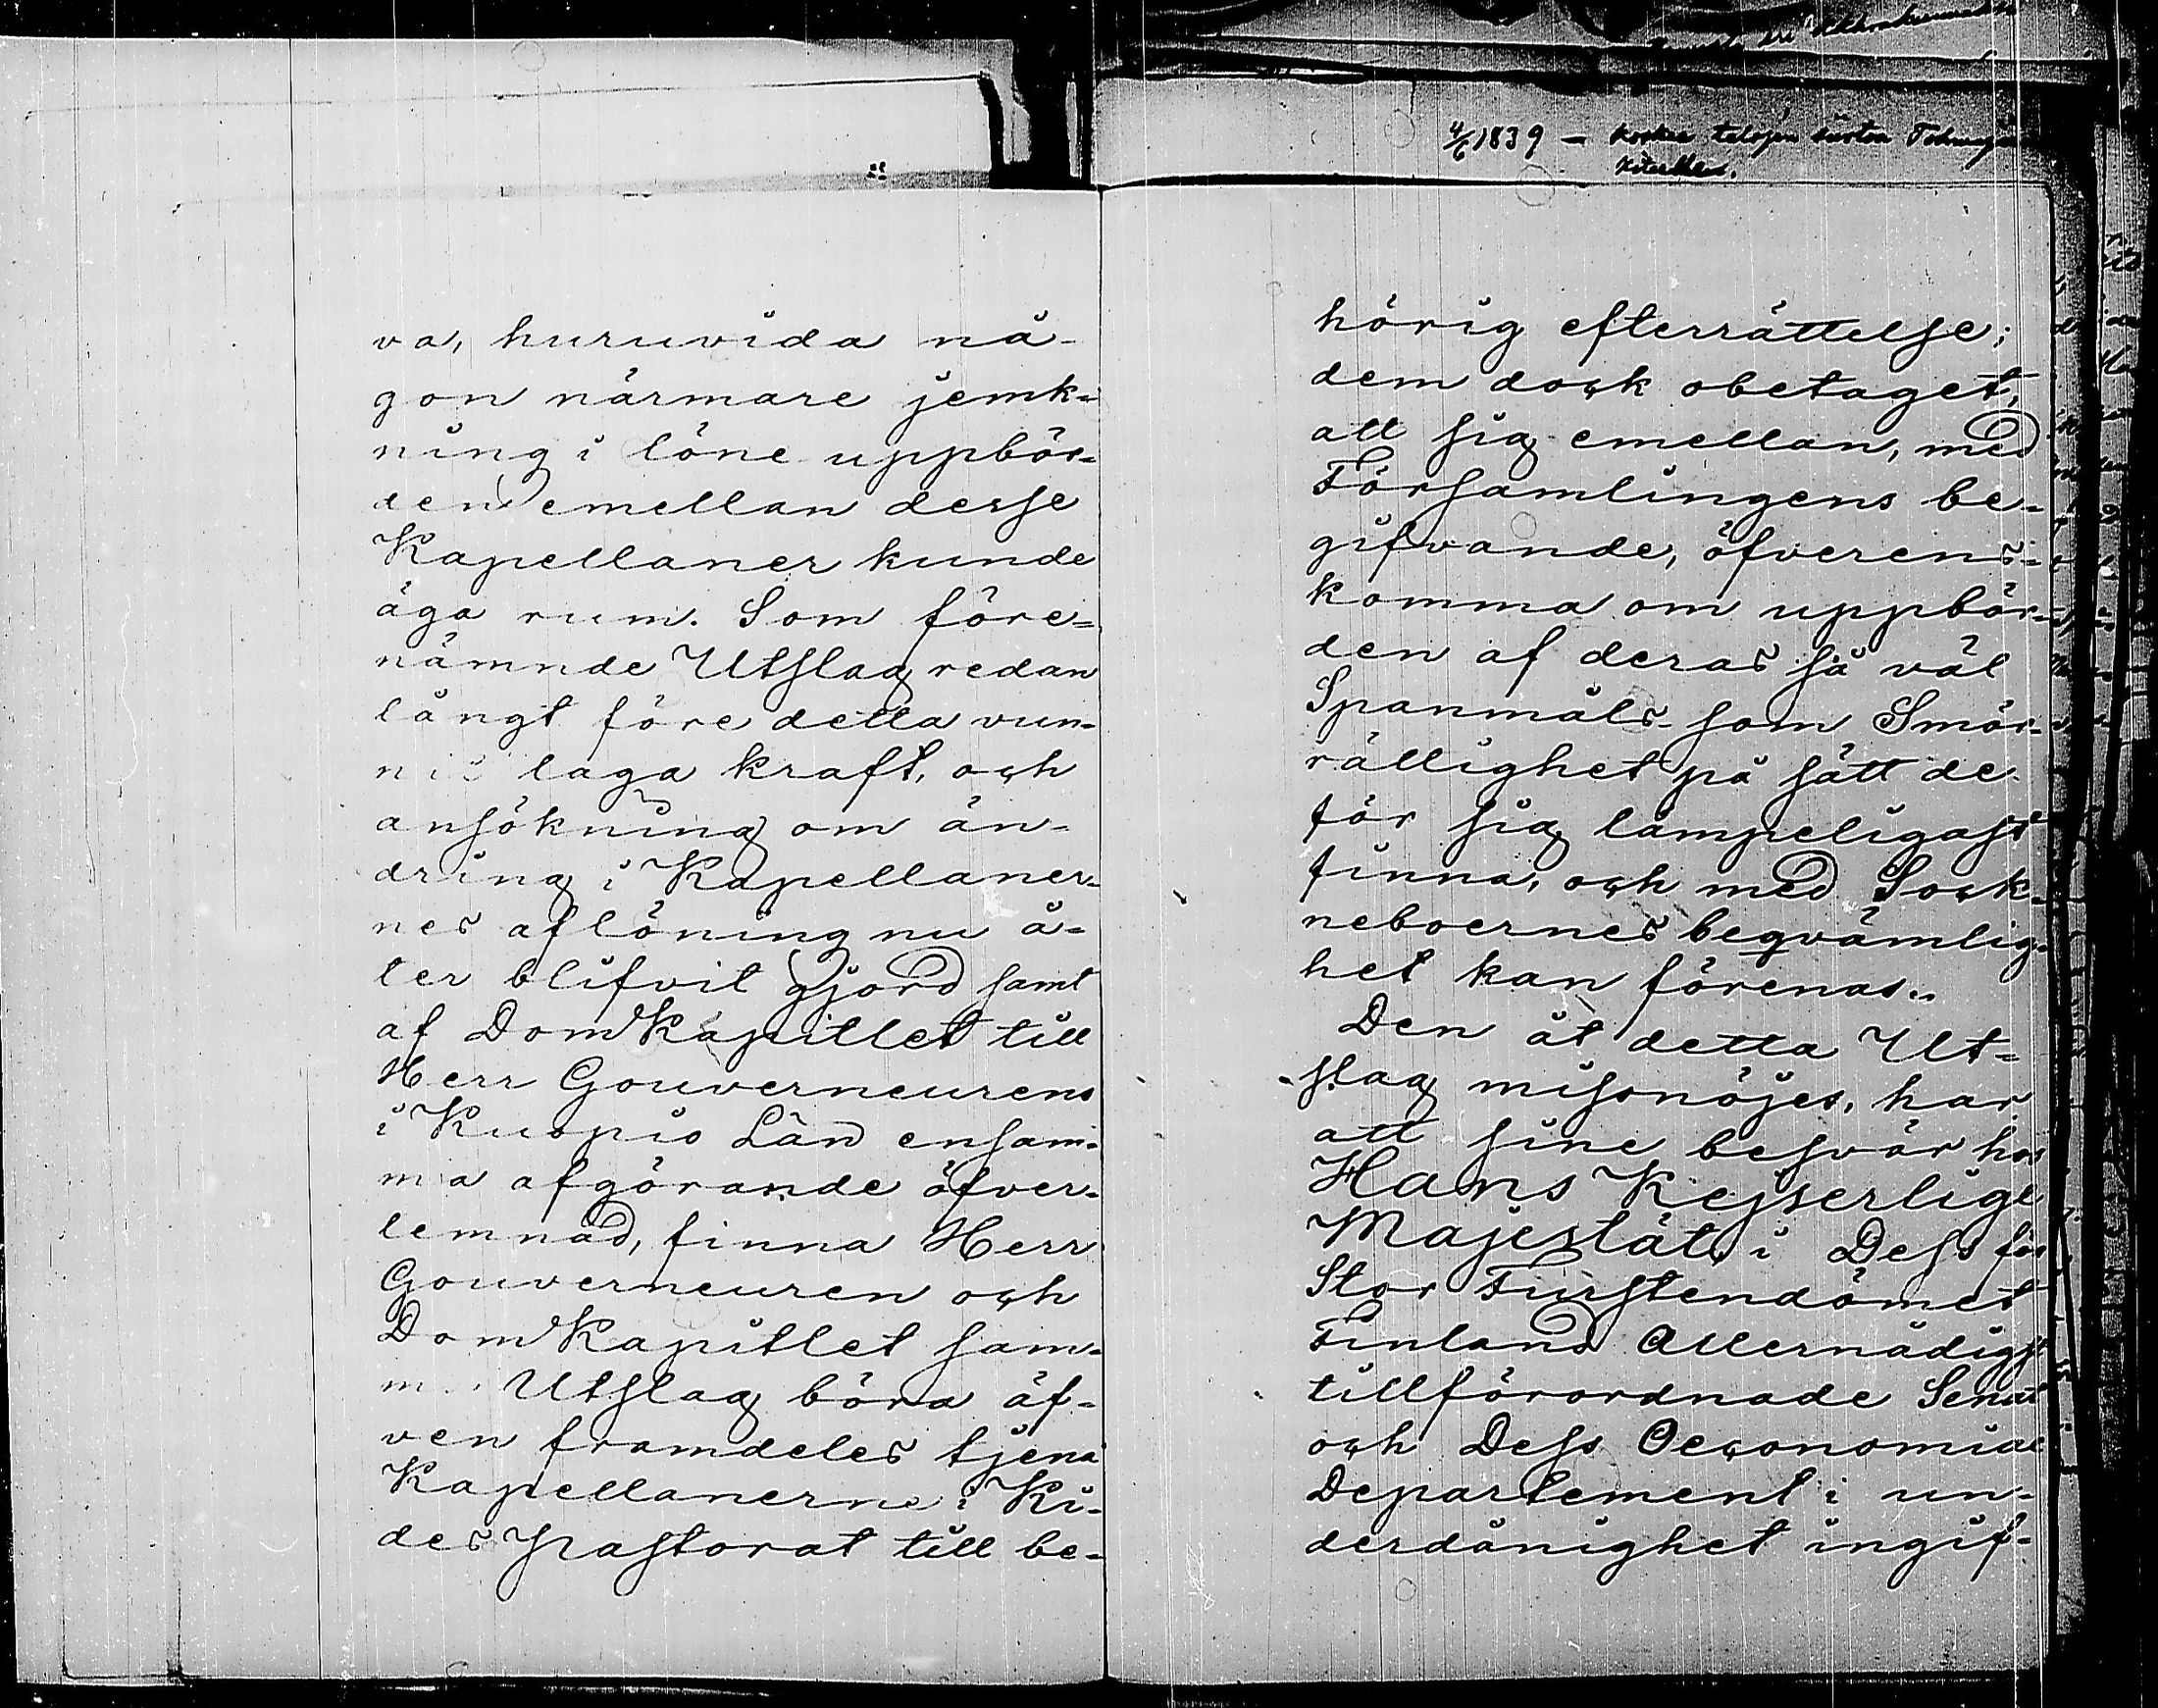 va, huruvida nå-
gon närmare jemk=
ning i löne uppbör=
den emellan desse
Kapellaner kunde
äga rum. Som före=
nämnde Utslag redan
långt före detta vun=
nit laga kraft, och
ansökning om än-
dring i Kapellaner=
nes aflöning nu å=
ter blifvit gjord samt
af DomKapitlet till
Herr Gouverneurens
i Kuopio Län ensam=
ma afgörande öfver=
lemnad, finna Herr
Gouverneuren och
DomKapitlet sam=
ma Utslag böra äf-
ven framdeles tjena
Kapellanerne i Ki-
des Pastorat till be=
4/6 1839 -
hörig efterrättelse;
dem dock obetaget,
att sig emellan, med
Församlingens be-
gifvande, öfverens=
komma om uppbör=
den af deras så väl
Spanmåls- som Smör-
rättighet på sätt de
för sig lämpeligast
finna, och med Sock=
neboernes beqvämlig=
het kan förenas..
Den åt detta Ut=
slag missnöjes, har
att sine besvär hos
Hans Kejserlige
Majestät, i Dess för
Stor Furstendömet
Finland Allernådigst
tillförordnade Senat
och Dess Oeconomiae
Departement i un-
derdånighet ingif-